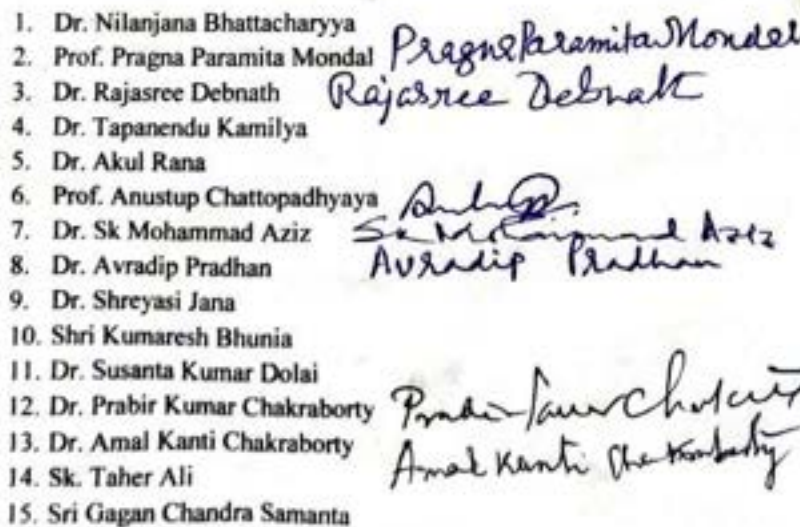 1. Dr. Nilanjana Bhattacharyya
2. Prof. Pragna Paramita Mondal Pragna Paramita Mondal
3. Dr. Rajasree Debnath Rajasree Debnath
4. Dr. Tapanendu Kamilya
5. Dr. Akul Rana
6. Prof. Anustup Chattopadhyaya
7. Dr. Sk Mohammad Aziz Sk Mohammad Aziz
8. Dr. Avradip Pradhan Avradip Pradhan
9. Dr. Shreyasi Jana
10. Shri Kumaresh Bhunia
11. Dr. Susanta Kumar Dolai
12. Dr. Prabir Kumar Chakraborty
13. Dr. Amal Kanti Chakraborty Amal Kanti Chakraborty
14. Sk. Taher Ali
15. Sri Gagan Chandra Samanta